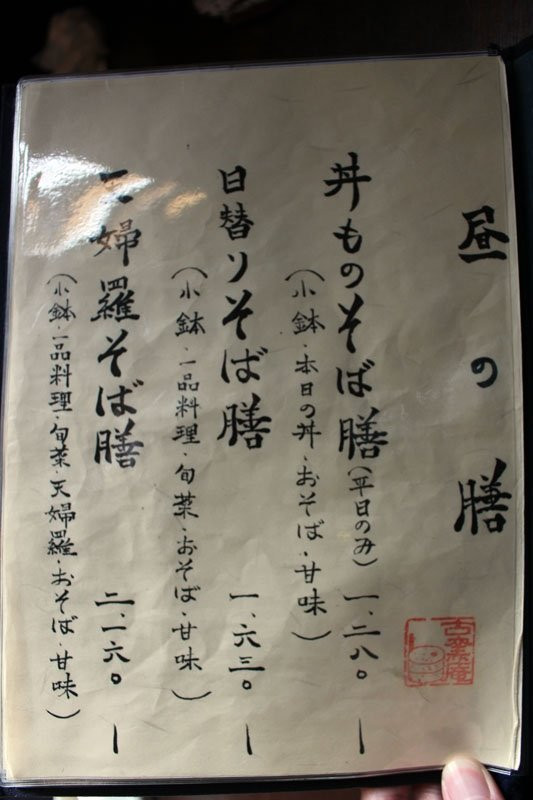 昼の膳
丼ものそば膳(平日のみ)一、二八〇ー
(小鉢・本日の丼・おそば・甘味)
日替りそば膳 一、六三〇ー
(小鉢・一品料理・旬菜・おそば・甘味)
天婦羅そば膳 二、一六〇ー
(小鉢・一品料理・旬菜・天婦羅・おそば・甘味)
古窯庵